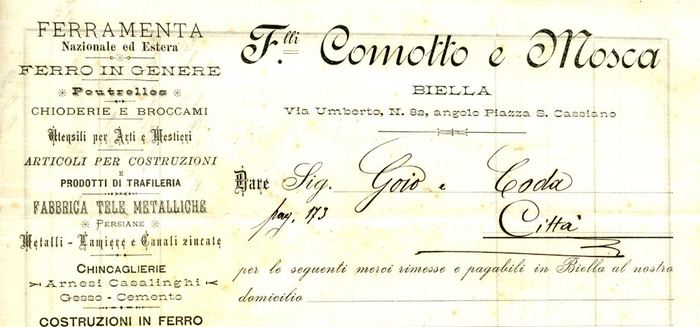 FERRAMENTA
Nazionale ed Estera
FERRO IN GENERE
Poutrelles
CHIODERIE E BROCCAMI
Utensili per Arti e Mestieri
ARTICOLI PER COSTRUZIONI
E
PRODOTTI DI TRAFILERIA
FABBRICA TELE METALLICHE
PERSIANE
Metalli - Lamiere e Canali zincate
CHINCAGLIERIE
Arnesi Casalinghi
Gesso - Cemento
COSTRUZIONI IN FERRO
F.lli Comotto e Mosca
BIELLA
Via Umberto, N. 82, angolo Piazza S. Cassiano
Dare Sig. Goio e Coda
pag. 173 Città
per le seguenti merci rimesse e pagabili in Biella al nostro
domicilio